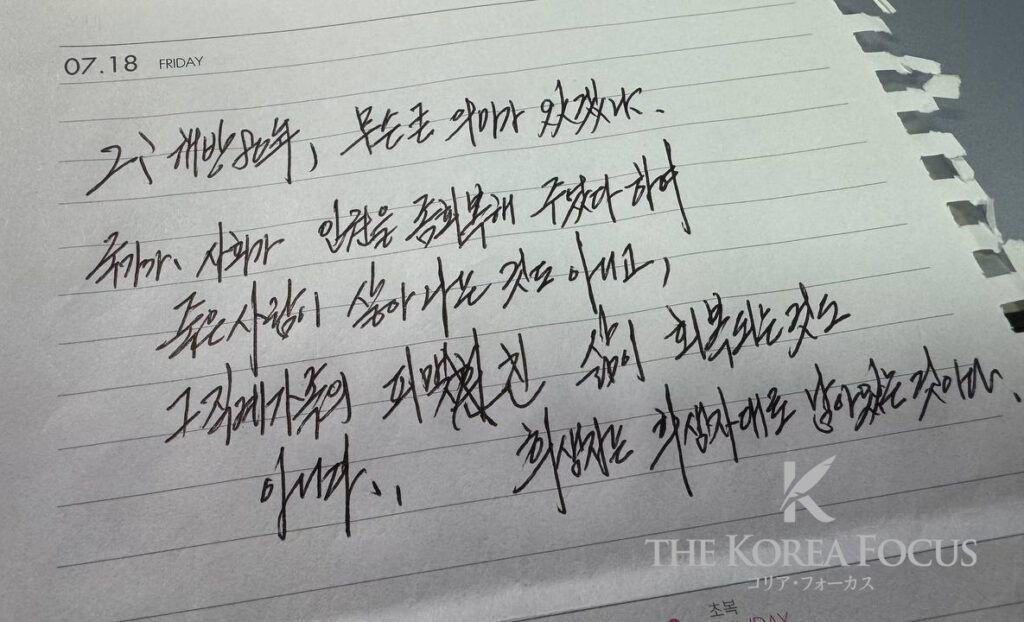 07.18 FRIDAY
해방80年, 무슨 큰 의미가 있겠나.
국가가, 사회가 인권을 좀회복해 주었다 하여
죽은사람이 살아나는 것도 아니고,
그 직계가족의 피맺힌 삶이 회복되는것도
아니다.. 희생자는 희생자대로 남아있는 것이다.
THE KOREA FOCUS
コリア・フォーカス
초복